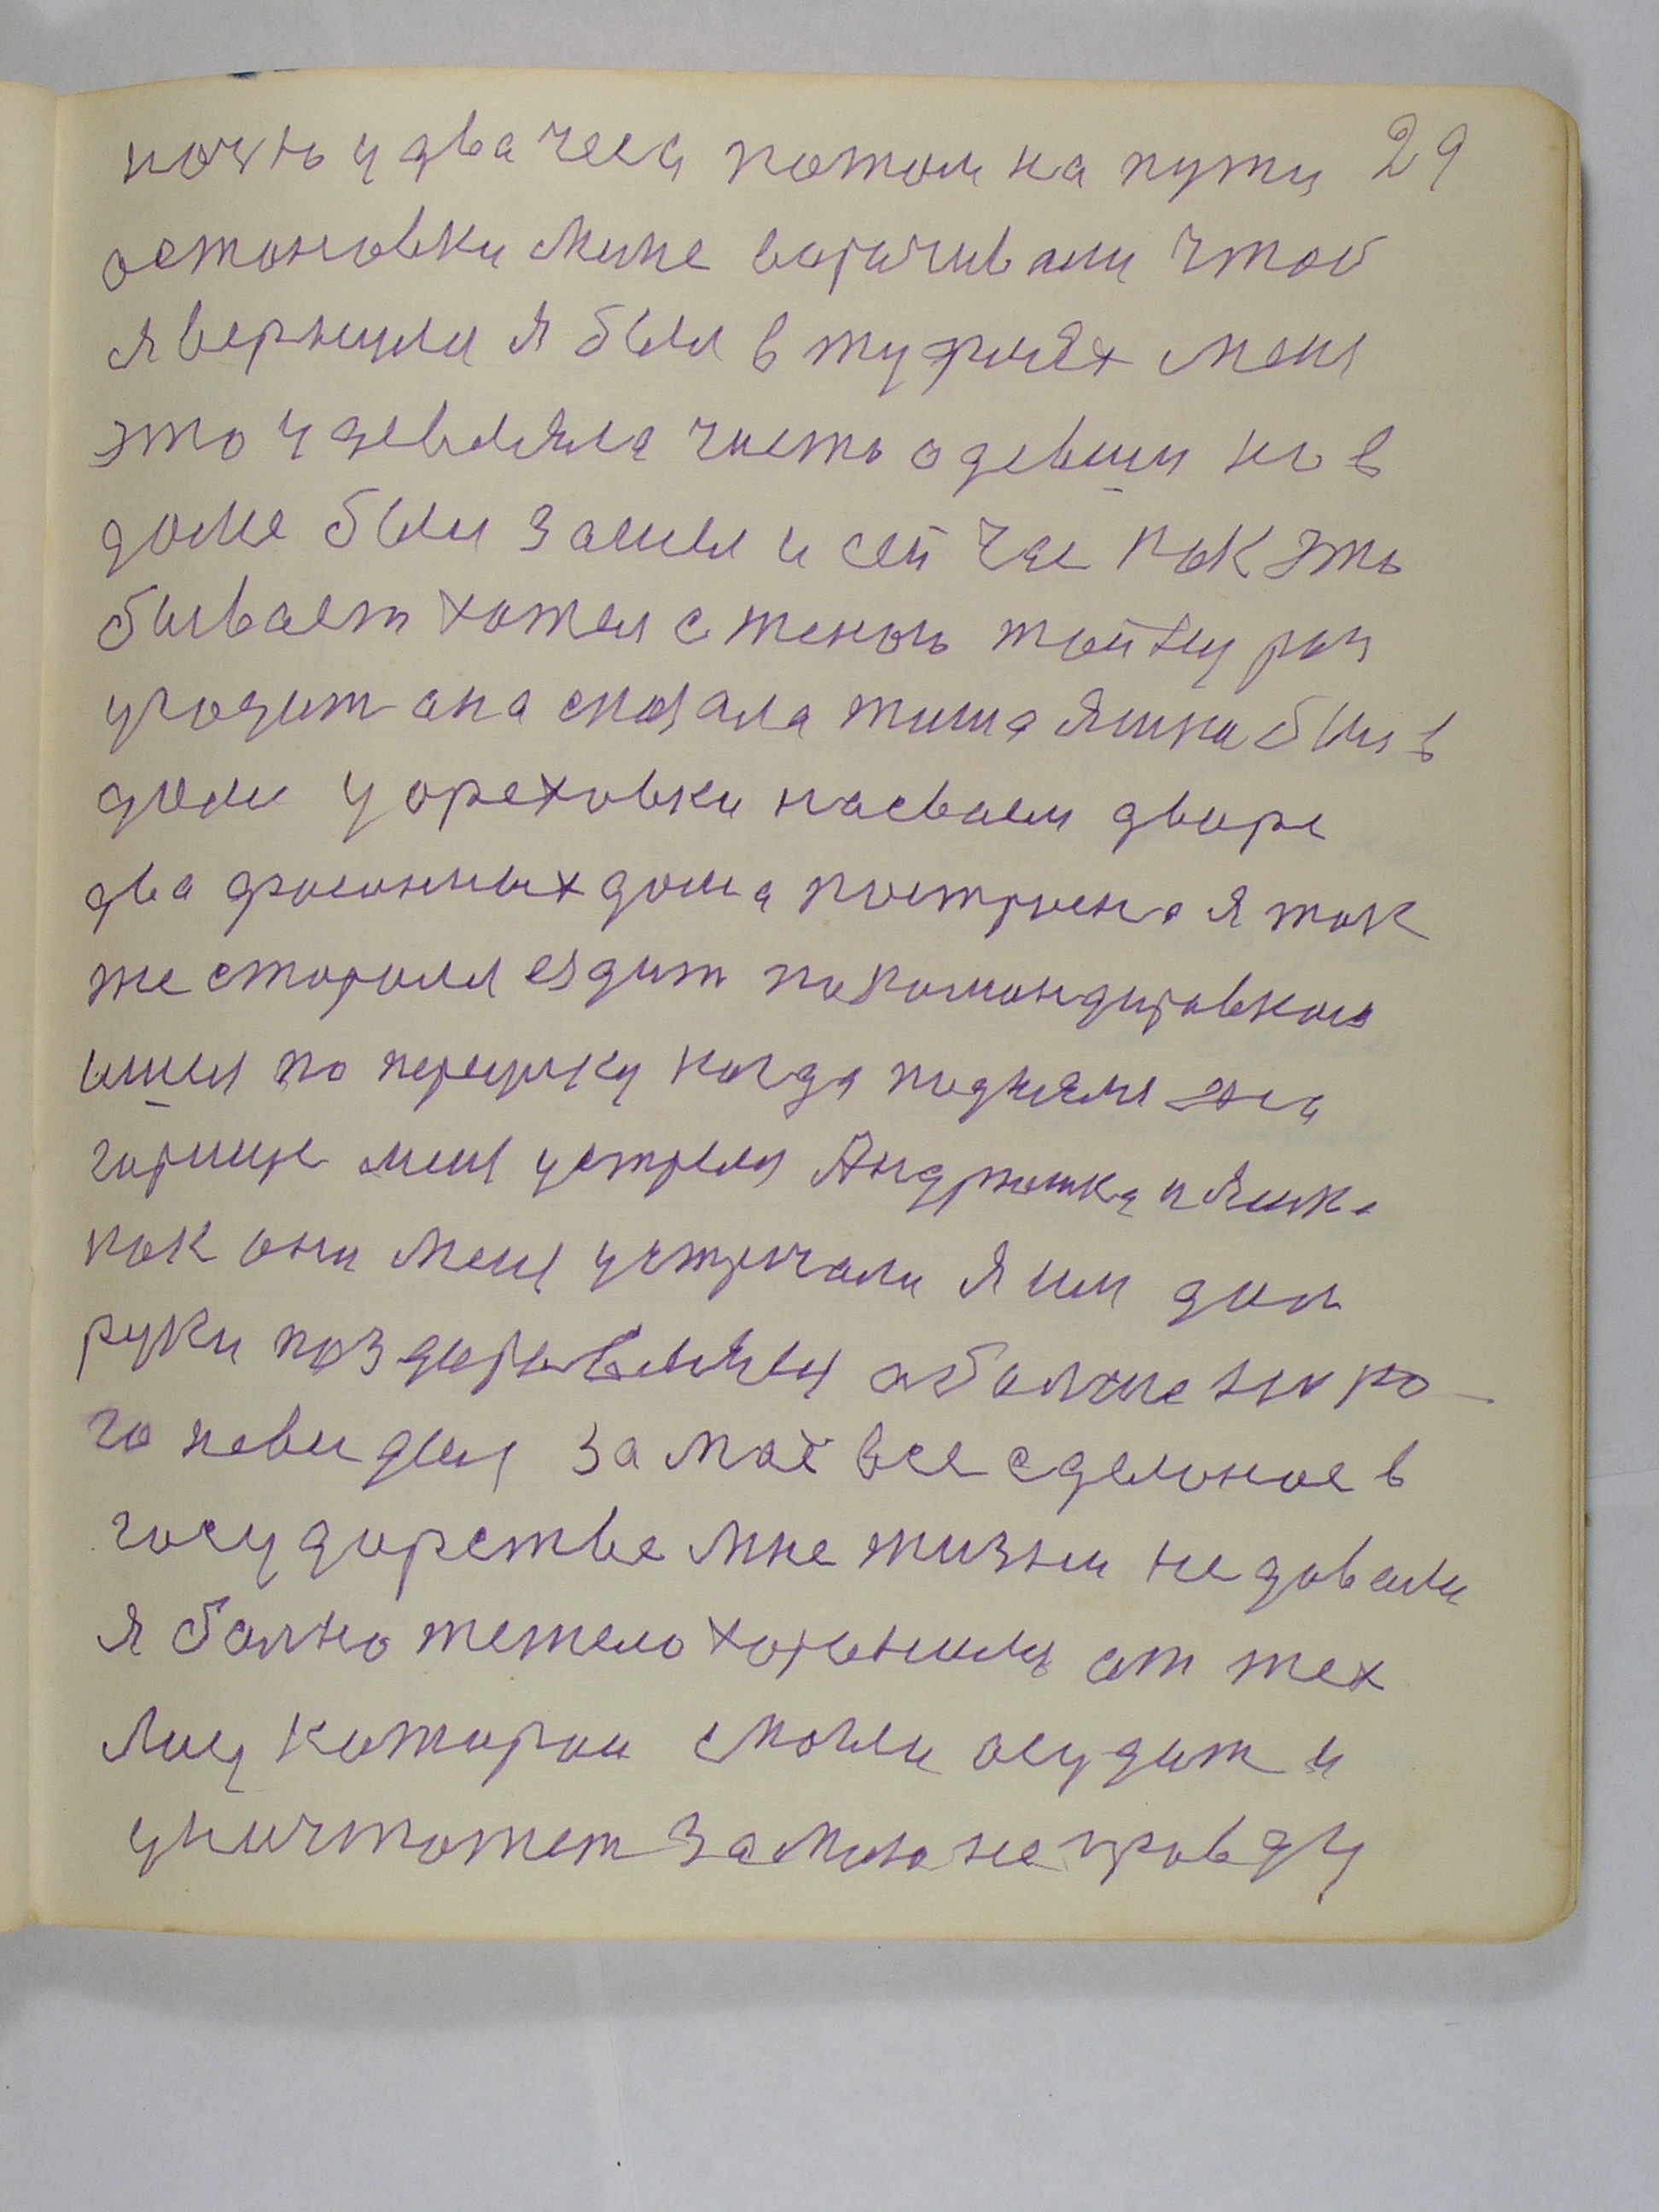 ночью у два часа потом на пути 29
остоновки мине ворачивали чтоб
я вернулся я был в туфлях меня
это удевляла чисть одевши но в
доме был зашел и сей час как это
бывает хотел с женою
угодит она сказала тиша яшка был в
доми у ореховки насваем дворе
два фасонных дома построена я так
же старался ездит по командировкам
ишел по переулку когда поднялся на
горище меня устрел Андрюшка и яшка
как они меня устричали я им дал
руки поздаровлялся а больше нико-
го невидел за маё все сделоное в
государстве мне жизни не довали
я больно тежело хоронился от тех
лиц катораи могли осудит и
уничтожет за мою неправду